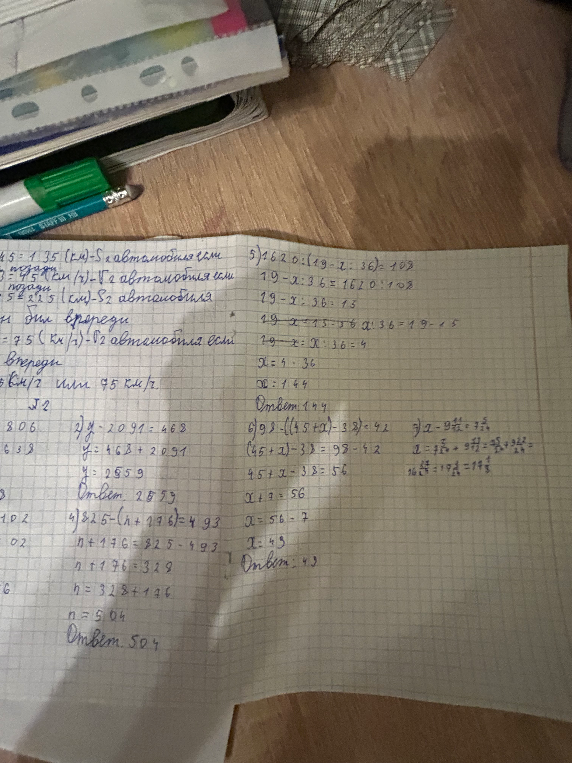 45 = 135 (км) - S 2 автомобиля если
позади
3 = 45 (км/ч) - V 2 автомобиля если
позади
5 = 225 (км) - S 2 автомобиля
он был впереди
= 75 (км/ч) - V 2 автомобиля если
впереди
км/ч или 75 км/ч.
№2
806
638
102
02
2) y - 2091 = 468
y = 468 + 2091
y = 2559
Ответ 2559
4) 825 - (n + 176) = 493
n + 176 = 825 - 493
n + 176 = 328
n = 328 + 176
n = 504
Ответ. 504
5) 1620 : (19 - x : 36) = 108
19 - x : 36 = 1620 : 108
19 - x : 36 = 15
19 - x = 15 = 36 x : 36 = 19 - 15
19 - x = x : 36 = 4
x = 4 · 36
x = 144
Ответ 144
6) 98 - ((45 + x) - 38) = 42
(45 + x) - 38 = 98 - 42
45 + x - 38 = 56
x + 7 = 56
x = 56 - 7
x = 49
Ответ: 49